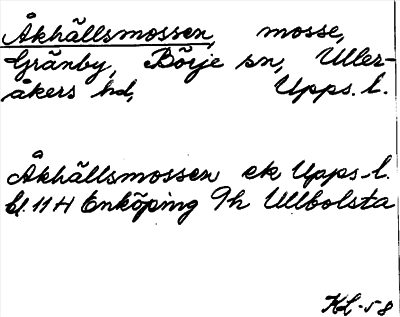 Åkhällsmossen, mosse,
Gränby, Börje sn, Uller-
åkers hd, Upps. l.
Åkhällsmossen ek Upps. l.
bl. 11 H Enköping 9h Ullbolsta
KL-58